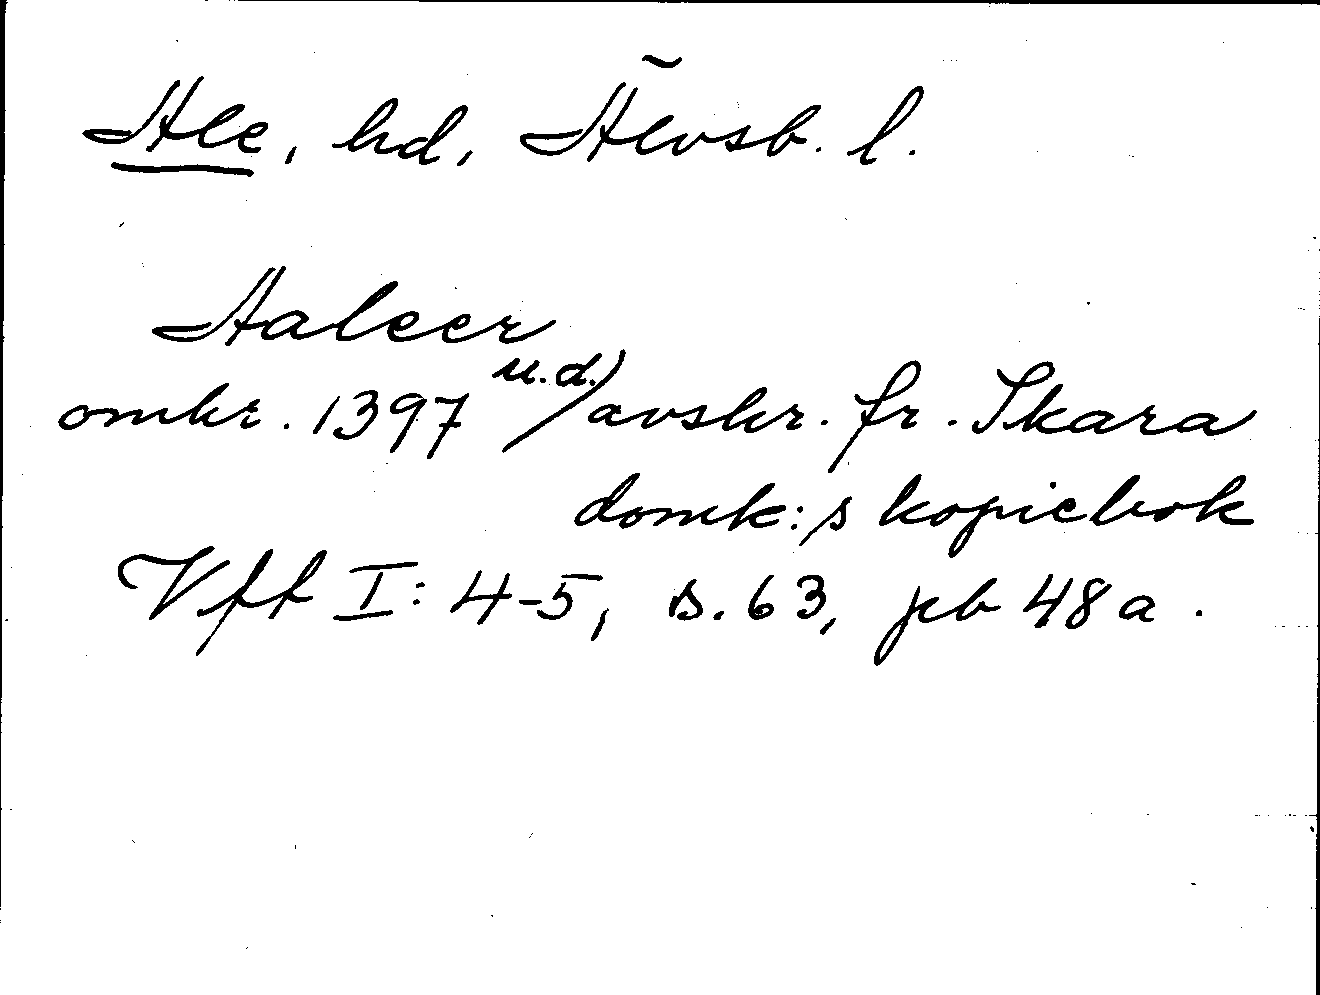 Ale, hd, Älvsb. l.
Aaleer
omkr. 1397 u.d./avskr. fr. Skara
domk:s kopiebok
Vff I: 4-5, s. 63, pb 48a.